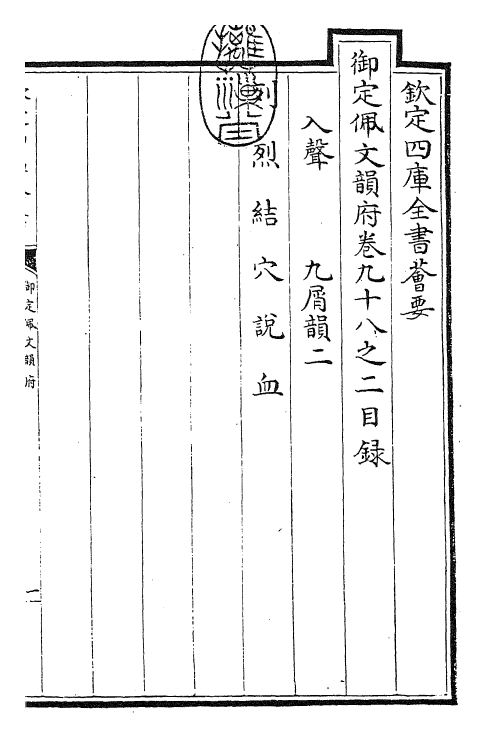 欽定四庫全書薈要
御定佩文韻府卷九十八之二目録
入聲　九屑韻二
列烈結穴說血
御定佩文韻府
一